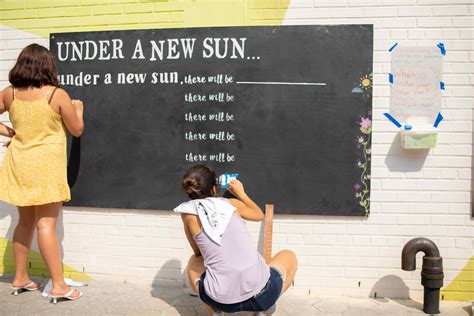 UNDER A NEW SUN...
under a new sun, there will be
there will be
there will be
there will be
there will be